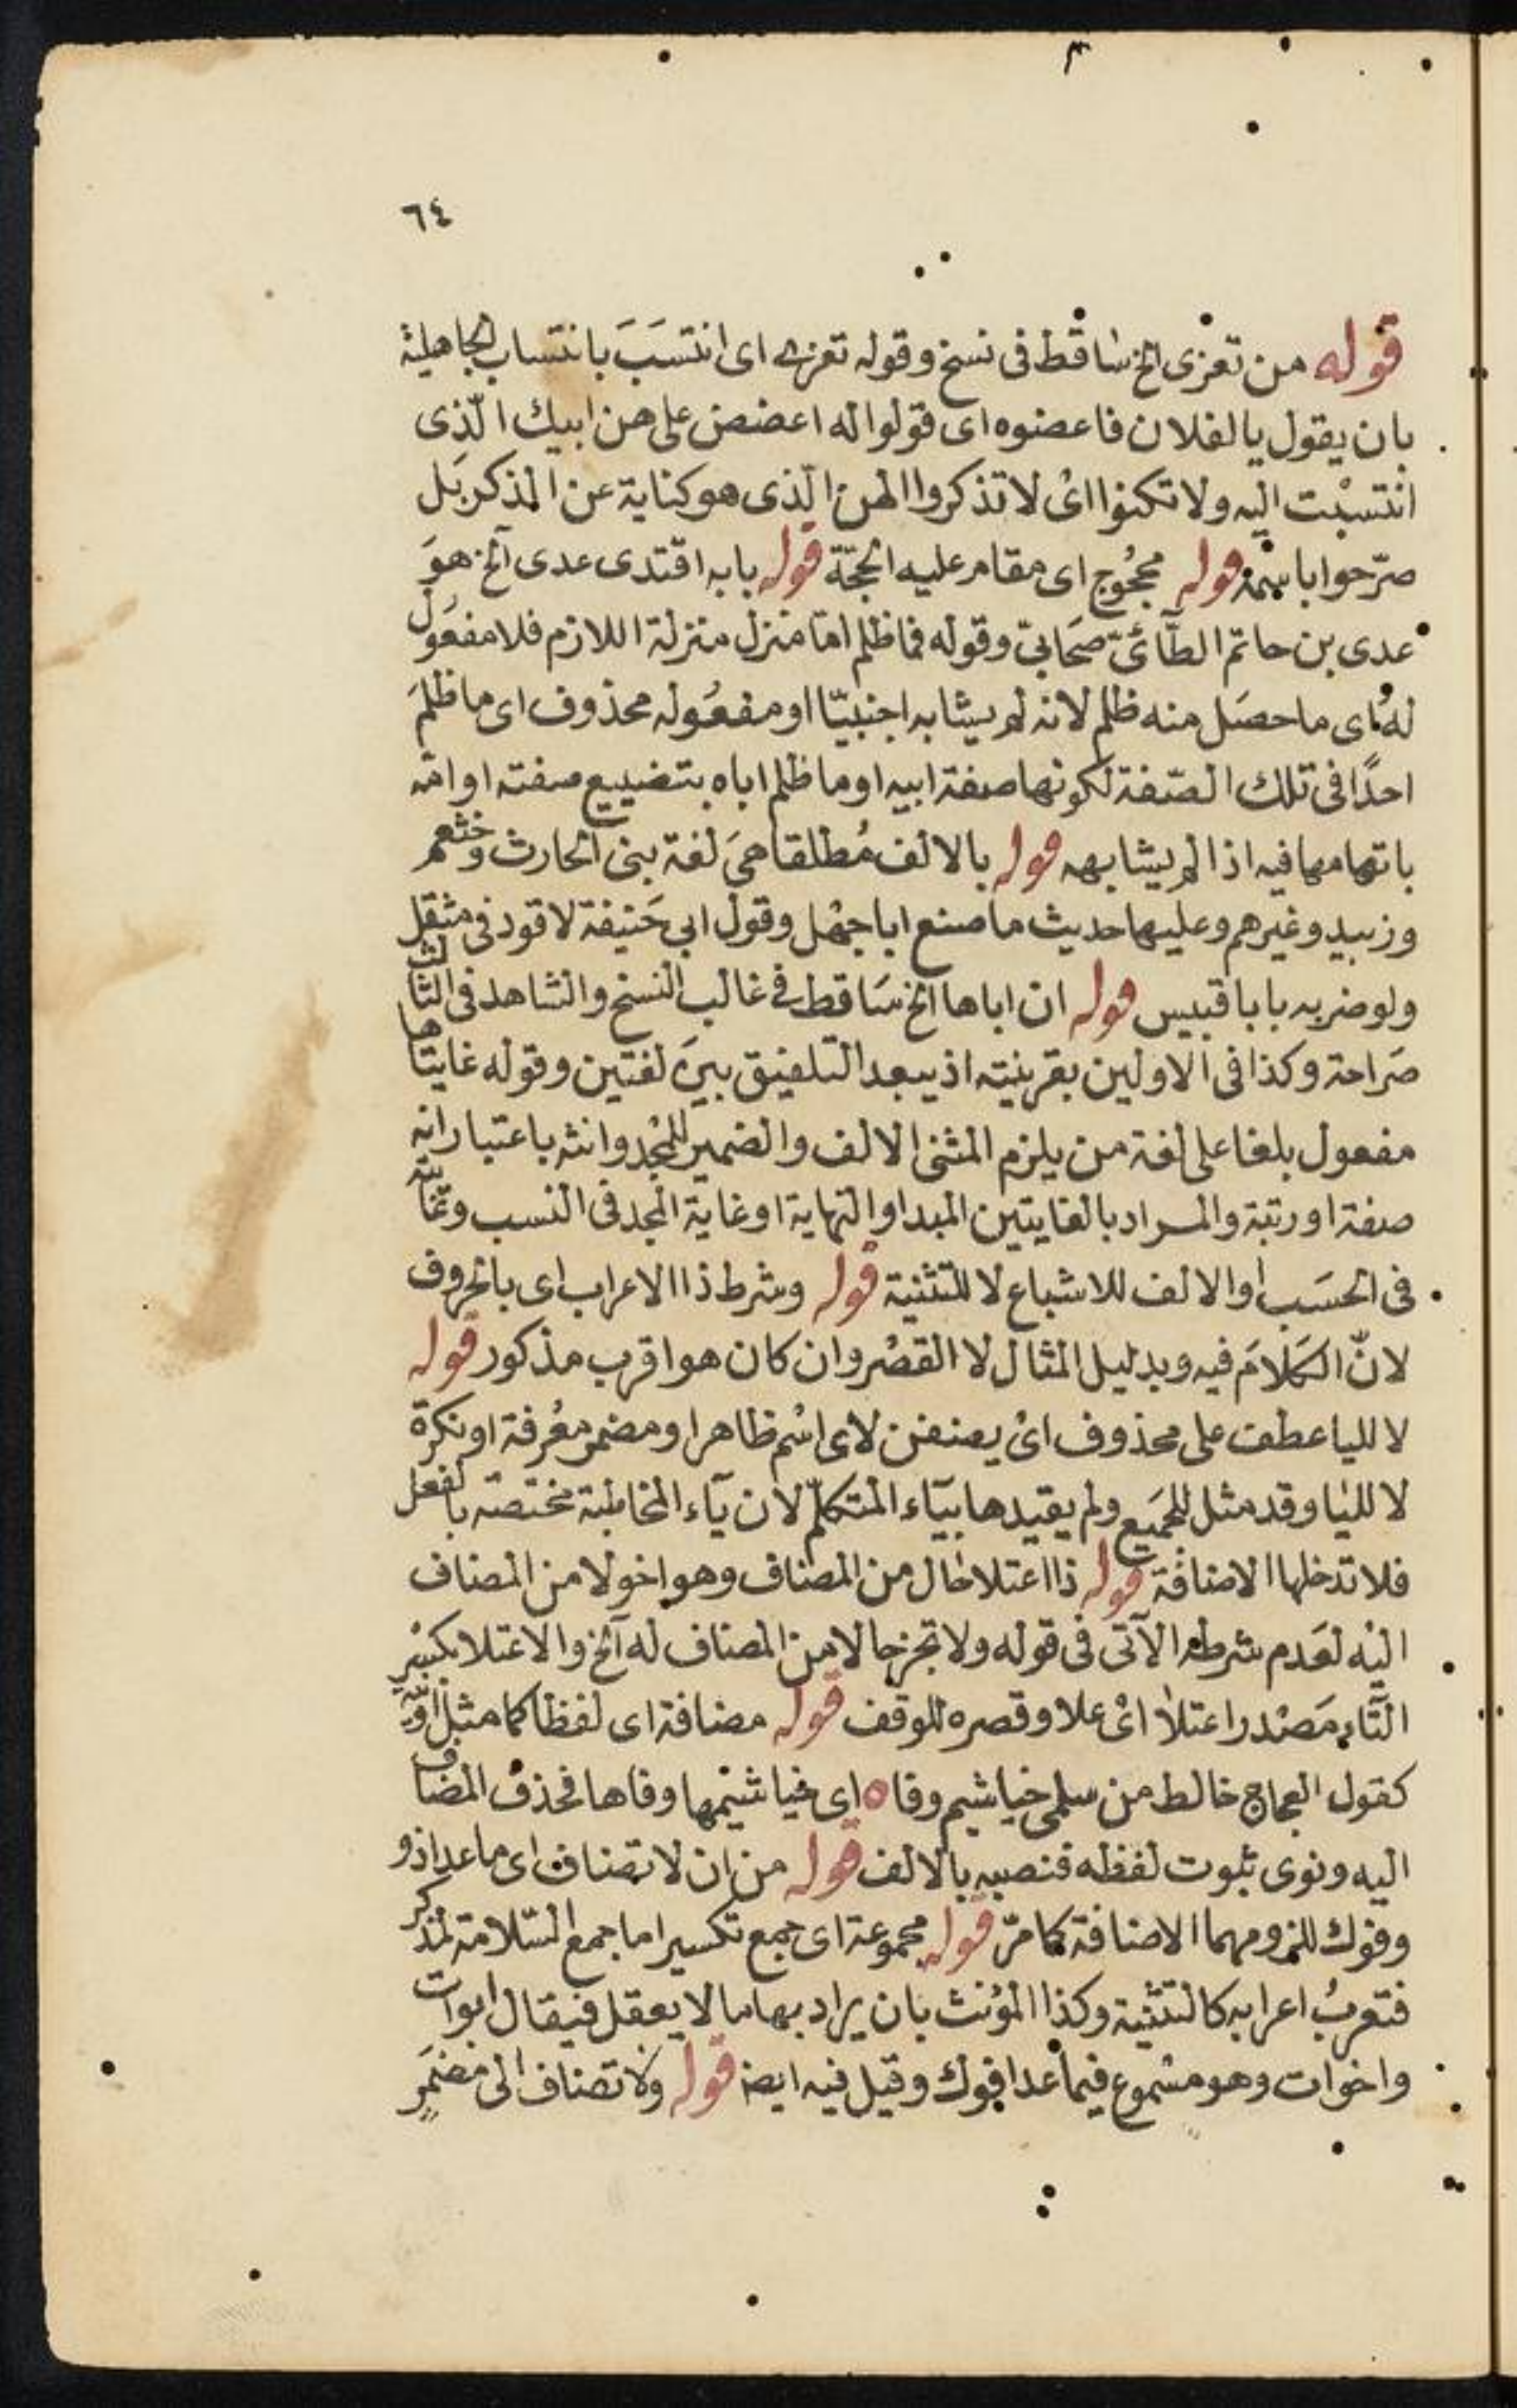 ٦٤
قوله من تعزى الخ ساقط فى نسخ وقوله تعزى اى انتسَبَ بانتساب الجاهلية
بان يقول يا لفلان فاعضوه اى قولوا له اعضض على هن ابيك الّذى
انتسبْت اليه ولا تكنوا اىْ لا تذكروا الهن الّذى هو كناية عن الذكر بَل
صرّحوا باسمه قوله محجُوج اى مقام عليه الحجّة قوله بابه اقتدى عدى الخ هوَ
عدى بن حاتم الطّآئىّ صحَابىّ وقوله فما ظلم امّا منزل منزلة اللازم فلا مفعَول
لهُ اى ما حصَل منه ظلم لانه لم يشابه اجنبيّا او مفعُوله محذوف اى ما ظلمَ
احدًا فى تلك الصّفة لكونها صفة ابيه او ما ظلم اباه بتضييع صفته او امّه
باتهامها فيه اذا لم يشابهه قوله بالالف مُطلقا هىَ لغة بنى الحارث وخثعم
وزبيد وغيرهم وعليها حديث ما صنع ابا جهْل وقول ابى حَنيفة لا قود فى مثقل
ولو ضربه بابا قبيس قوله ان اباها الخ سَاقط فى غالب النسخ والشاهد فى الثالث
صَراحة وكذا فى الاولين بقرينته اذ يبعد التلفيق بيَن لغتين وقوله غايتاها
مفعول بلغا على لغة من يلزم المثنى الالف والضمير للمجْد وانثه باعتبار انه
صفة او رتبة والمراد بالغايتين المبدا والنهاية او غاية المجد فى النسب وغايته
فى الحسَب او الالف للاشباع لا للتثنية قوله وشرط ذا الاعراب اى بالحروف
لانّ الكلامَ فيه وبدليل المثال لا القصْر وان كان هو اقرب مذكور قوله
لا لليا عطف على محذوف اىْ يضفن لاى اسْم ظاهر او مضمر معْرفة او نكرة
لا لليا وقد مثل للجَميع ولم يقيدها بيَآء المتكلّم لان يآء المخاطبة مختصّه بالفعل
فلا تدخلها الاضافة قوله ذا اعتلا حال من المضاف وهو اخو لا من المضاف
اليْه لعَدم شرطه الآتى فى قوله ولا تجز حالا من المضاف له الخ والاعتلا بكسْرِ
التّاءِ مَصْدر اعتلا اىْ علا وقصره للوقف قوله مضافة اى لفظا كما مثل او نيّة
كقول العجاج خالط من سلمى خياشيم وفا ه اى خياشيْمها وفاها فحذف المضاف
اليه ونوى ثبوت لفظه فنصبه بالالف قوله من ان لا تضاف اى ما عدا ذو
وفوك للزومهما الاضافة كما مرّ قوله مجموعة اى جمع تكسير اما جمع السّلامة لمذكر
فتعربُ اعرابه كالتثنية وكذا المؤنث بان يراد بها ما لا يعقل فيقال ابوات
واخوات وهو مسْموع فيما عدا فوك وقيل فيه ايضا قوله ولا تضاف الى مضمَرٍ